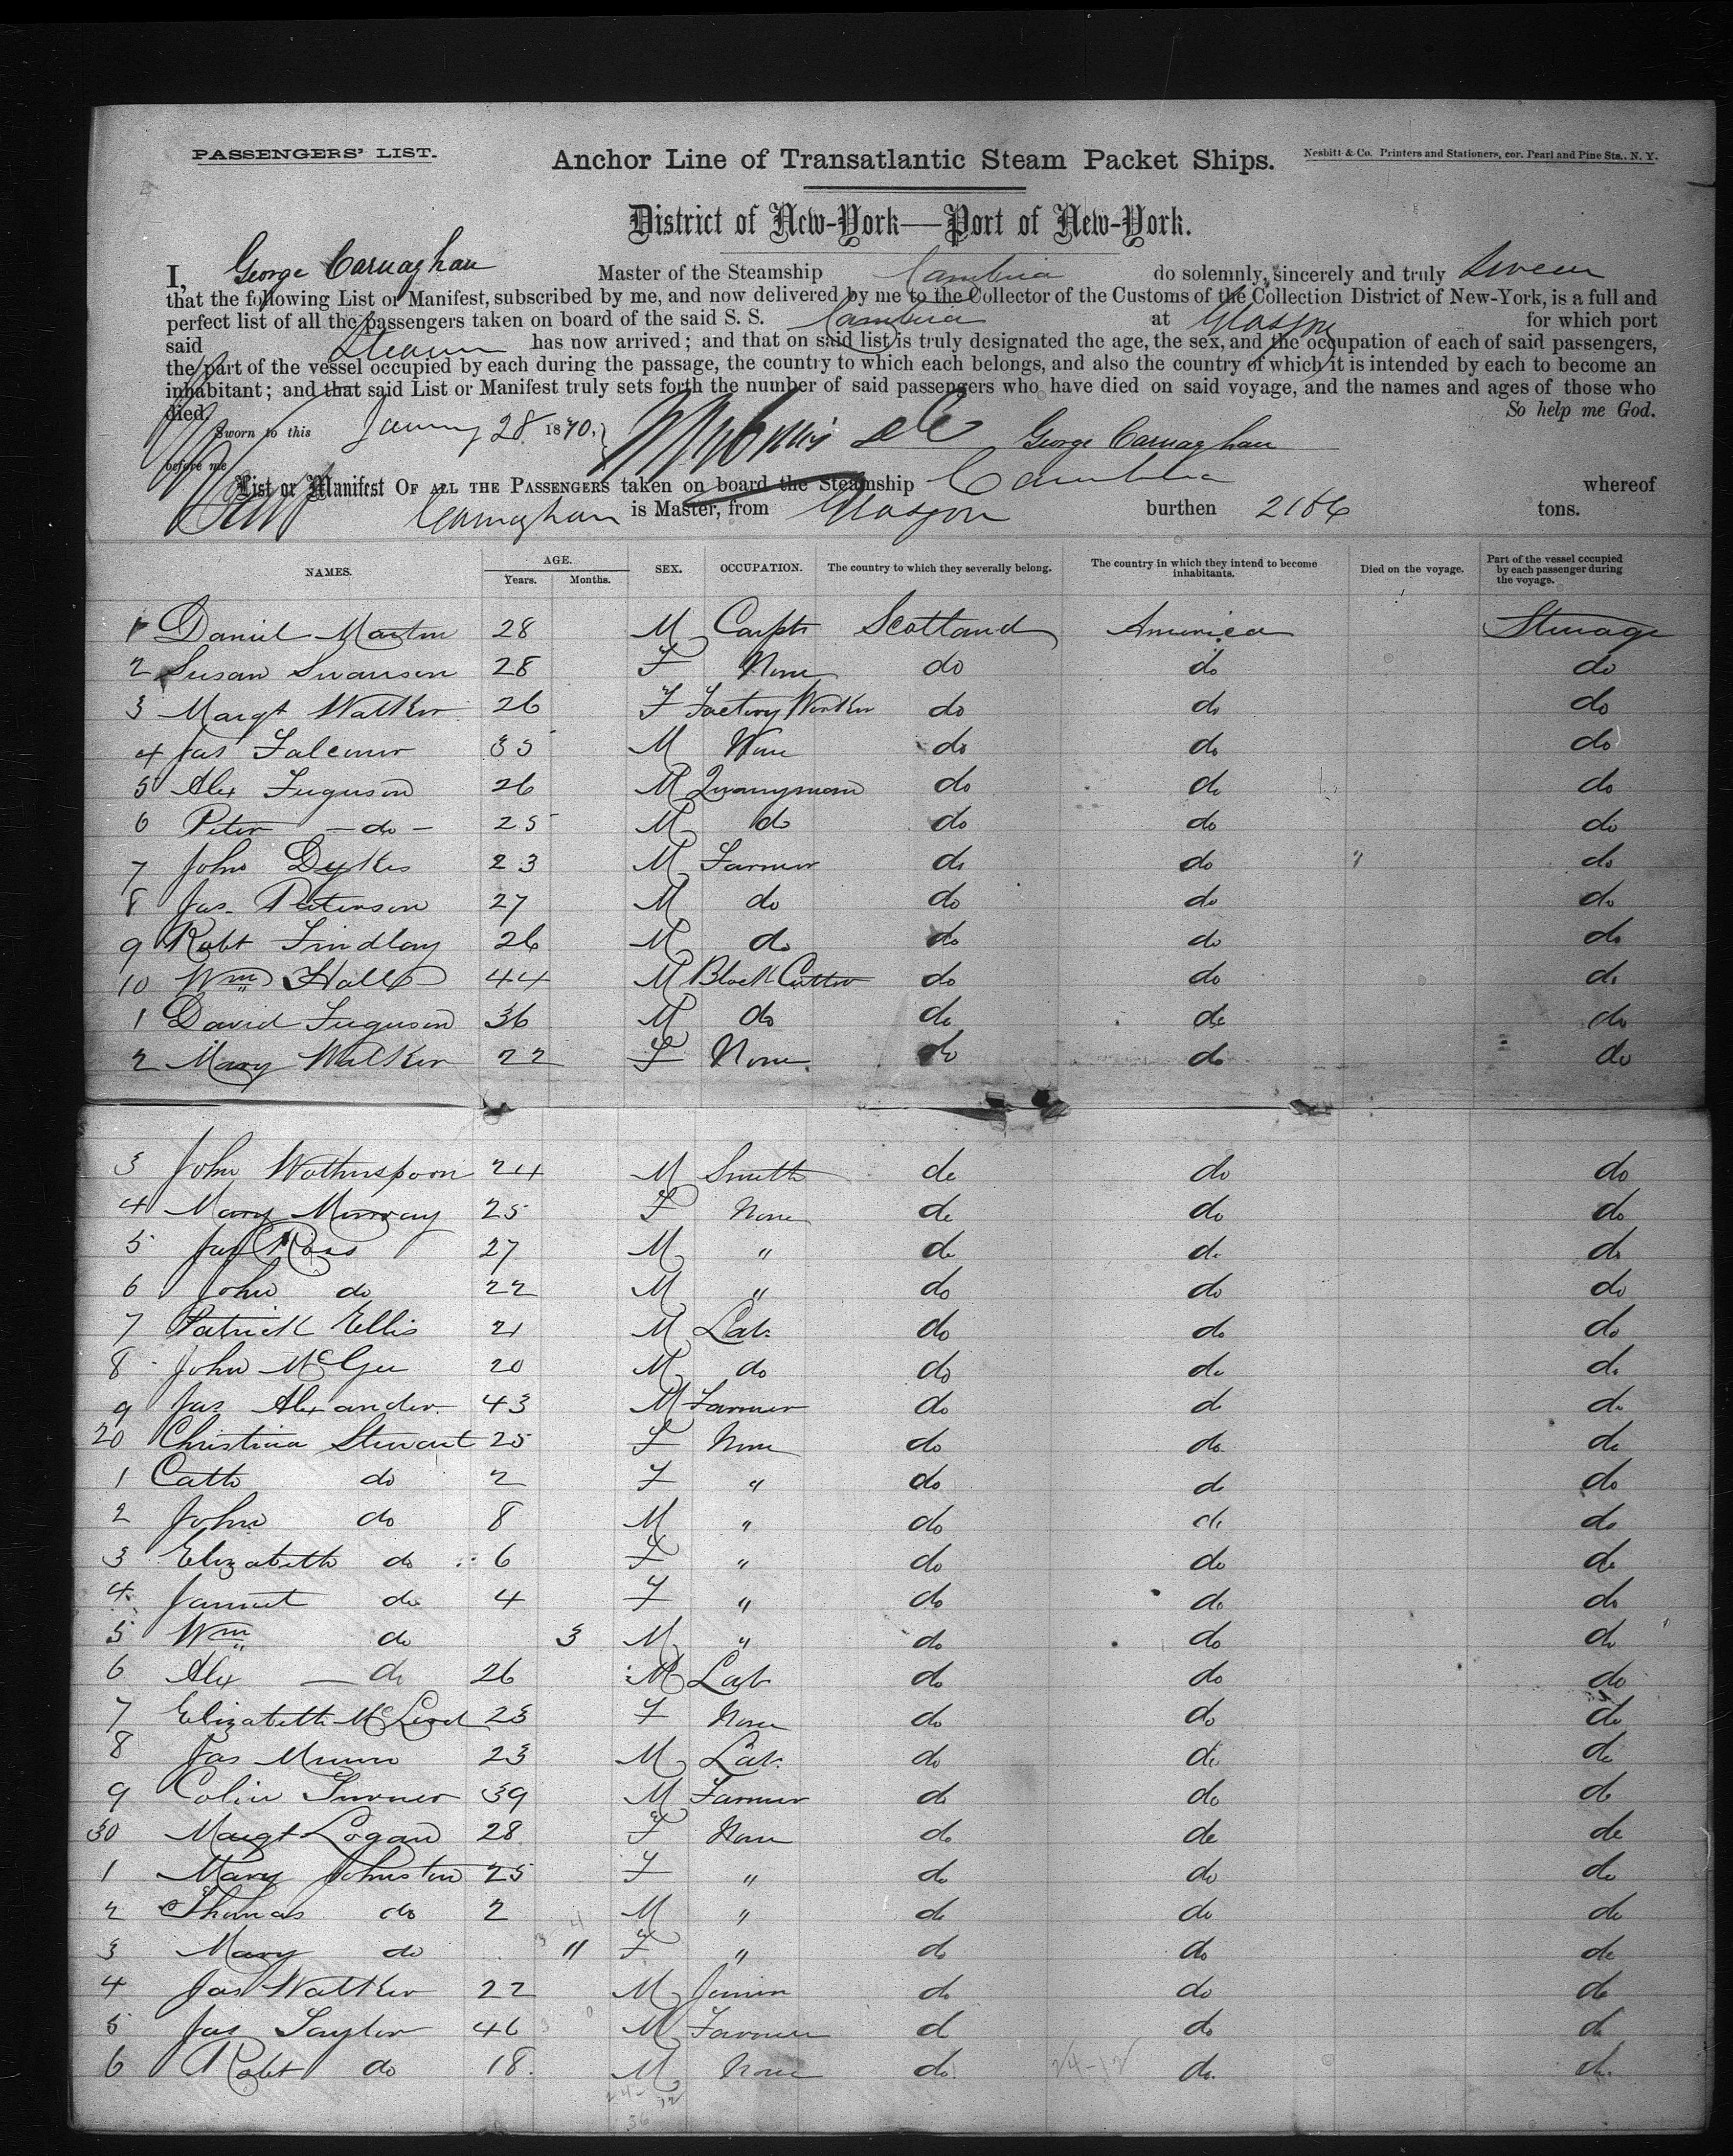 PASSENGERS' LIST.
Anchor Line of Transatlantic Steam Packet Ships.
Nesbitt & Co. Printers and Stationers, cor. Pearl and Pine Sts., N. Y.
District of New-York—Port of New-York.
I, George Carnaghan Master of the Steamship Cambria do solemnly, sincerely and truly swear
that the following List or Manifest, subscribed by me, and now delivered by me to the Collector of the Customs of the Collection District of New-York, is a full and
perfect list of all the passengers taken on board of the said S. S. Cambria at Glasgow for which port
said Steamer has now arrived; and that on said list is truly designated the age, the sex, and the occupation of each of said passengers,
the part of the vessel occupied by each during the passage, the country to which each belongs, and also the country of which it is intended by each to become an
inhabitant; and that said List or Manifest truly sets forth the number of said passengers who have died on said voyage, and the names and ages of those who
died. So help me God.
Sworn to this January 28 1870. George Carnaghan
before me
List or Manifest OF ALL THE PASSENGERS taken on board the Steamship Cambria whereof
Carnaghan is Master, from Glasgow burthen 2186 tons.
NAMES. AGE. Years. Months. SEX. OCCUPATION. The country to which they severally belong. The country in which they intend to become inhabitants. Died on the voyage. Part of the vessel occupied by each passenger during the voyage.
1 Daniel Martin 28 M Carptr Scotland America Steerage
2 Susan Swanson 28 F None do do do
3 Margt Walker 26 F Factory Worker do do do
4 Jas Falconer 35 M None do do do
5 Alex Ferguson 26 M Quarryman do do do
6 Peter — do — 25 M do do do do
7 John Dykes 23 M Farmer do do " do
8 Jas. Paterson 27 M do do do do
9 Robt Findlay 26 M do do do do
10 Wm Hall 44 M Block Cutter do do do
1 David Ferguson 36 M do do do do
2 Mary Walker 22 F None do do do
3 John Wotherspoon 24 M Smith do do do
4 Mary Murray 25 F None do do do
5 Jas Ross 27 M " do do do
6 John do 22 M " do do do
7 Patrick Ellis 21 M Lab do do do
8 John McGee 20 M do do do do
9 Jas Alexander 43 M Farmer do do do
20 Christina Stewart 25 F None do do do
1 Cath do 2 F " do do do
2 John do 8 M " do do do
3 Elizabeth do 6 F " do do do
4 Jannet do 4 F " do do do
5 Wm do 3 M " do do do
6 Alex — do 26 M Lab do do do
7 Elizabeth McLeod 23 F None do do do
8 Jas Munro 23 M Lab. do do do
9 Colin Turner 39 M Farmer do do do
30 Margt Logan 28 F None do do do
1 Mary Johnston 25 F " do do do
2 Thomas do 2 M " do do do
3 Mary do 11 F " do do do
4 Jas Walker 22 M Joiner do do do
5 Jas Taylor 46 M Farmer do do do
6 Robt do 18. M None do do do
24-12
24-12
36